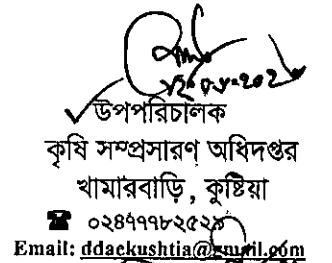 উপপরিচালক
কৃষি সম্প্রসারণ অধিদপ্তর
খামারবাড়ি, কুষ্টিয়া
☎ ০২৪৭৭৭৮২৫২৯
Email: ddaekushtia@gmail.com